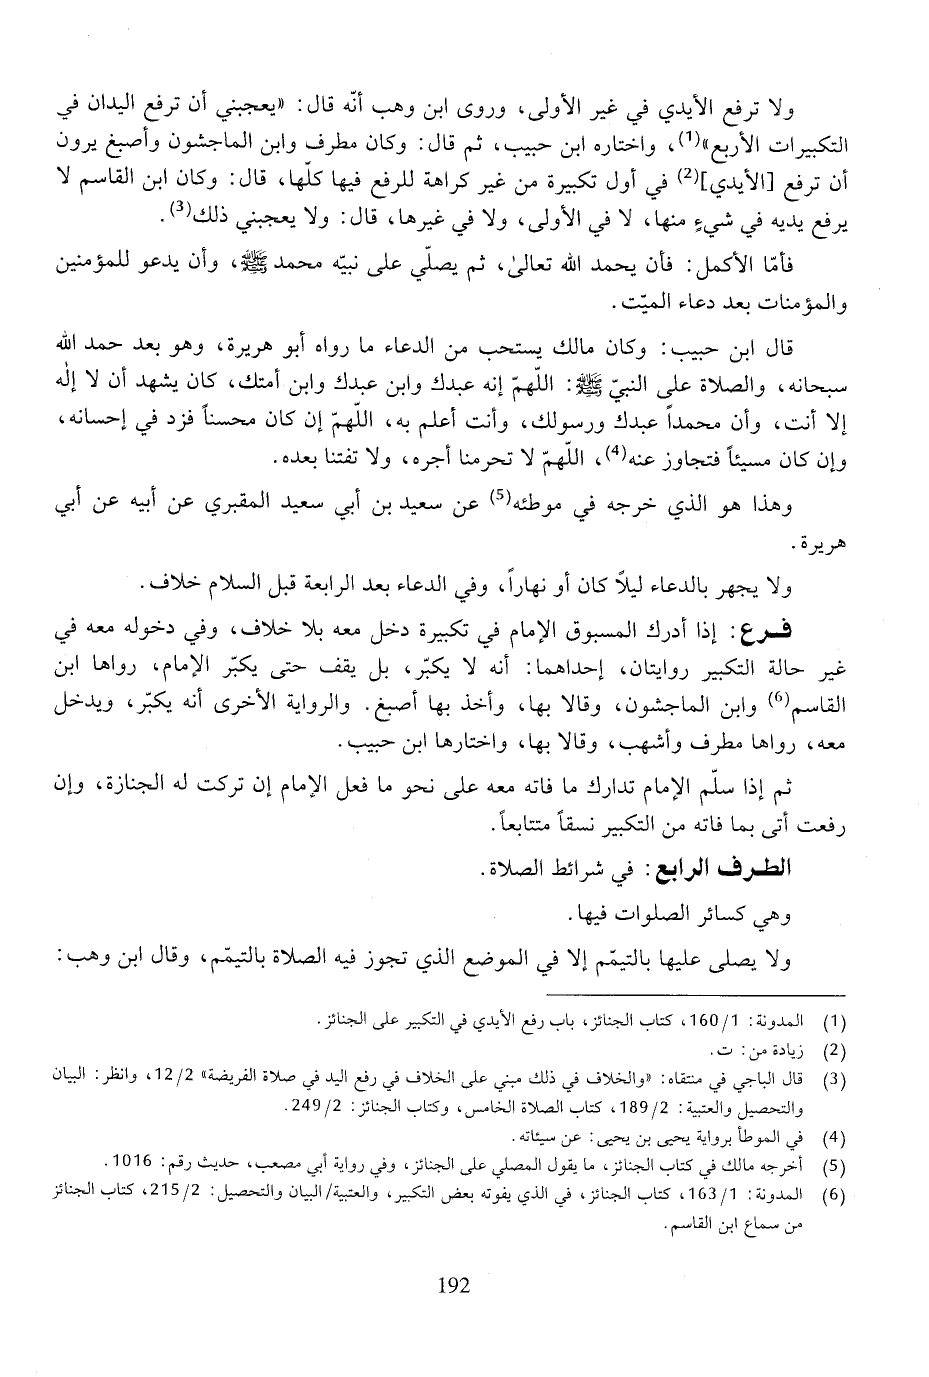 ولا ترفع الأيدي في غير الأولى، وروى ابن وهب أنّه قال: «يعجبني أن ترفع اليدان في
التكبيرات الأربع»(1)، واختاره ابن حبيب، ثم قال: وكان مطرف وابن الماجشون وأصبغ يرون
أن ترفع [الأيدي](2) في أول تكبيرة من غير كراهة للرفع فيها كلّها، قال: وكان ابن القاسم لا
يرفع يديه في شيءٍ منها، لا في الأولى، ولا في غيرها، قال: ولا يعجبني ذلك(3).
فأمّا الأكمل: فأن يحمد الله تعالىٰ، ثم يصلّي على نبيّه محمد ﷺ، وأن يدعو للمؤمنين
والمؤمنات بعد دعاء الميّت.
قال ابن حبيب: وكان مالك يستحب من الدعاء ما رواه أبو هريرة، وهو بعد حمد الله
سبحانه، والصلاة على النبيّ ﷺ: اللّهمّ إنه عبدك وابن عبدك وابن أمتك، كان يشهد أن لا إلٰه
إلا أنت، وأن محمداً عبدك ورسولك، وأنت أعلم به، اللّهمّ إن كان محسناً فزد في إحسانه،
وإن كان مسيئاً فتجاوز عنه(4)، اللّهمّ لا تحرمنا أجره، ولا تفتنا بعده.
وهذا هو الذي خرجه في موطئه(5) عن سعيد بن أبي سعيد المقبري عن أبيه عن أبي
هريرة.
ولا يجهر بالدعاء ليلاً كان أو نهاراً، وفي الدعاء بعد الرابعة قبل السلام خلاف.
فـرع: إذا أدرك المسبوق الإمام في تكبيرة دخل معه بلا خلاف، وفي دخوله معه في
غير حالة التكبير روايتان، إحداهما: أنه لا يكبّر، بل يقف حتى يكبّر الإمام، رواها ابن
القاسم(6) وابن الماجشون، وقالا بها، وأخذ بها أصبغ. والرواية الأخرى أنه يكبّر، ويدخل
معه، رواها مطرف وأشهب، وقالا بها، واختارها ابن حبيب.
ثم إذا سلّم الإمام تدارك ما فاته معه على نحو ما فعل الإمام إن تركت له الجنازة، وإن
رفعت أتى بما فاته من التكبير نسقاً متتابعاً.
الطـرف الرابع: في شرائط الصلاة.
وهي كسائر الصلوات فيها.
ولا يصلى عليها بالتيمّم إلا في الموضع الذي تجوز فيه الصلاة بالتيمّم، وقال ابن وهب:
(1) المدونة: 160/1، كتاب الجنائز، باب رفع الأيدي في التكبير على الجنائز.
(2) زيادة من: ت.
(3) قال الباجي في منتقاه: «والخلاف في ذلك مبني على الخلاف في رفع اليد في صلاة الفريضة» 12/2، وانظر: البيان
والتحصيل والعتبية: 189/2، كتاب الصلاة الخامس، وكتاب الجنائز: 249/2.
(4) في الموطأ برواية يحيى بن يحيى: عن سيئاته.
(5) أخرجه مالك في كتاب الجنائز، ما يقول المصلي على الجنائز، وفي رواية أبي مصعب، حديث رقم: 1016.
(6) المدونة: 163/1، كتاب الجنائز، في الذي يفوته بعض التكبير، والعتبية/البيان والتحصيل: 215/2، كتاب الجنائز
من سماع ابن القاسم.
192